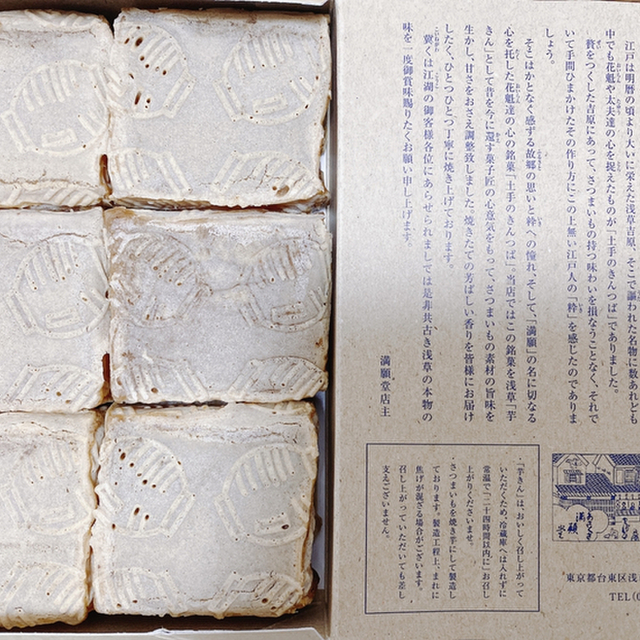 江戸は明暦の頃より大いに栄えた浅草吉原、そこで謳われた名物に数あれども
中でも花魁や太夫達の心を捉えたものが「土手のきんつば」でありました。
贅をつくした吉原にあって、さつまいもの持つ味わいを損なうことなく、それで
いて手間ひまかけたその作り方にこの上無い江戸人の「粋」を感じたのでありま
しょう。
そこはかとなく感ずる故郷の思いと粋への憧れ、そして、「満願」の名に切なる
心を托した花魁達の心の銘菓「土手のきんつば」。当店ではこの銘菓を浅草「芋
きん」として昔を今に還す菓子匠の心意気をもって、さつまいもの素材の旨味を
生かし、甘さをおさえ調整致しました。焼きたての芳ばしい香りを皆様にお届け
したく、ひとつひとつ丁寧に焼き上げております。
冀くは江湖の御客様各位にあらせられましては是非共古き浅草の本物の
味を一度御賞味賜りたくお願い申し上げます。
満願堂店主
「芋きん」は、おいしく召し上がって
いただくため、冷蔵庫へは入れずに
常温で「二十四時間以内」にお召し
上がりくださいませ。
さつまいもを焼き芋にして製造し
ております。製造工程上、まれに
焦げが混ざる場合がございます。
召し上がっていただいても差し
支えございません。
満願堂
東京都台東区浅
TEL(0